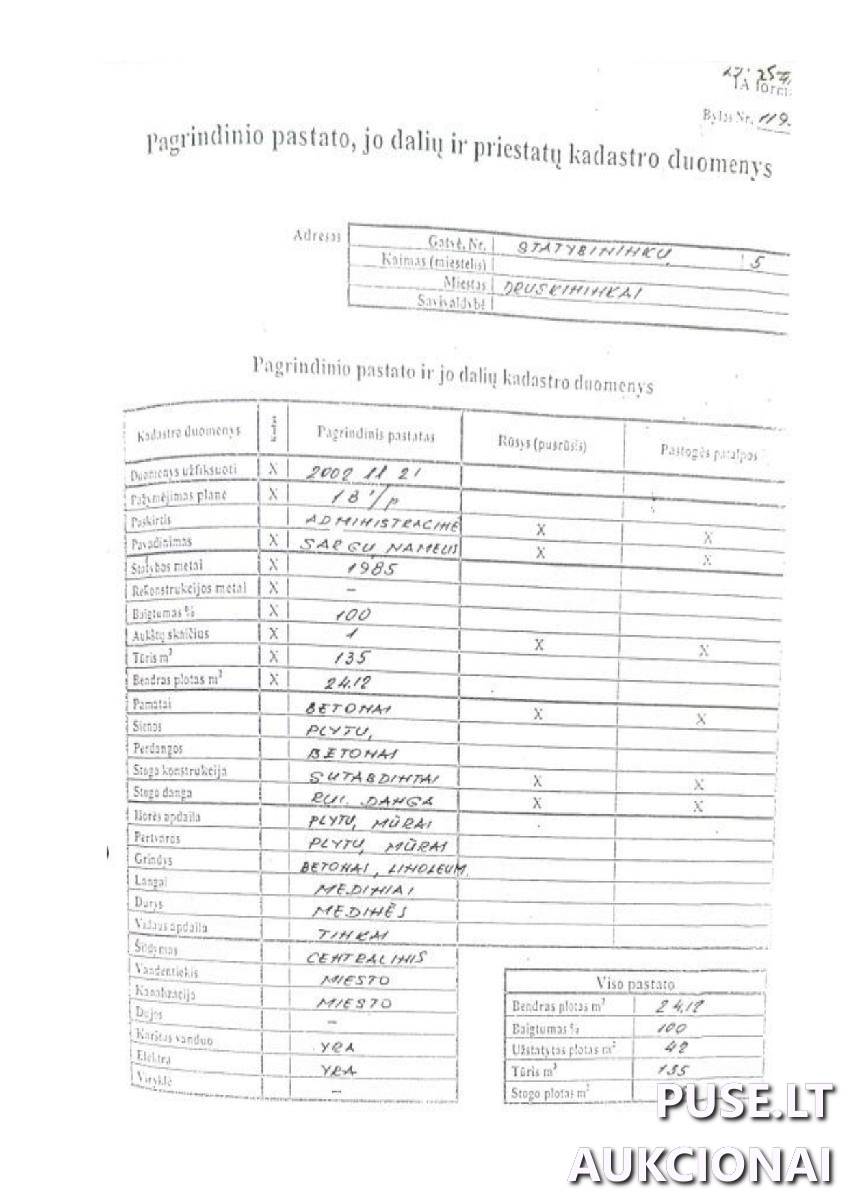 Bylos Nr. 119.
Pagrindinio pastato, jo dalių ir priestatų kadastro duomenys
Adresas
Gatvė, Nr. STATYBININKŲ 5
Kaimas (miestelis)
Miestas DRUSKININKAI
Savivaldybė
Pagrindinio pastato ir jo dalių kadastro duomenys
Kadastro duomenys Pagrindinis pastatas Rūsys (pusrūsis) Pastogės patalpos
Duomenys užfiksuoti X 2002 11 21
Pažymėjimas plane X 1B1/p
Paskirtis ADMINISTRACINĖ X X
Pavadinimas X SARGŲ NAMELIS X X
Statybos metai X 1985
Rekonstrukcijos metai X –
Baigtumas % X 100
Aukštų skaičius X 1 X X
Tūris m³ X 135
Bendras plotas m² X 24.12
Pamatai BETONAI X X
Sienos PLYTŲ
Perdangos BETONAI
Stogo konstrukcija SUTABDINTAI X X
Stogo danga RUL. DANGA X X
Išorės apdaila PLYTŲ MŪRAI
Pertvaros PLYTŲ MŪRAI
Grindys BETONAI, LINOLEUM
Langai MEDINIAI
Durys MEDINĖS
Vidaus apdaila TINKAI
Šildymas CENTRALINIS
Vandentiekis MIESTO
Kanalizacija MIESTO
Dujos –
Karštas vanduo YRA
Elektra YRA
Viryklė –
Viso pastato
Bendras plotas m² 24.12
Baigtumas % 100
Užstatytas plotas m² 42
Tūris m³ 135
Stogo plotas m²
PUSE.LT
AUKCIONAI